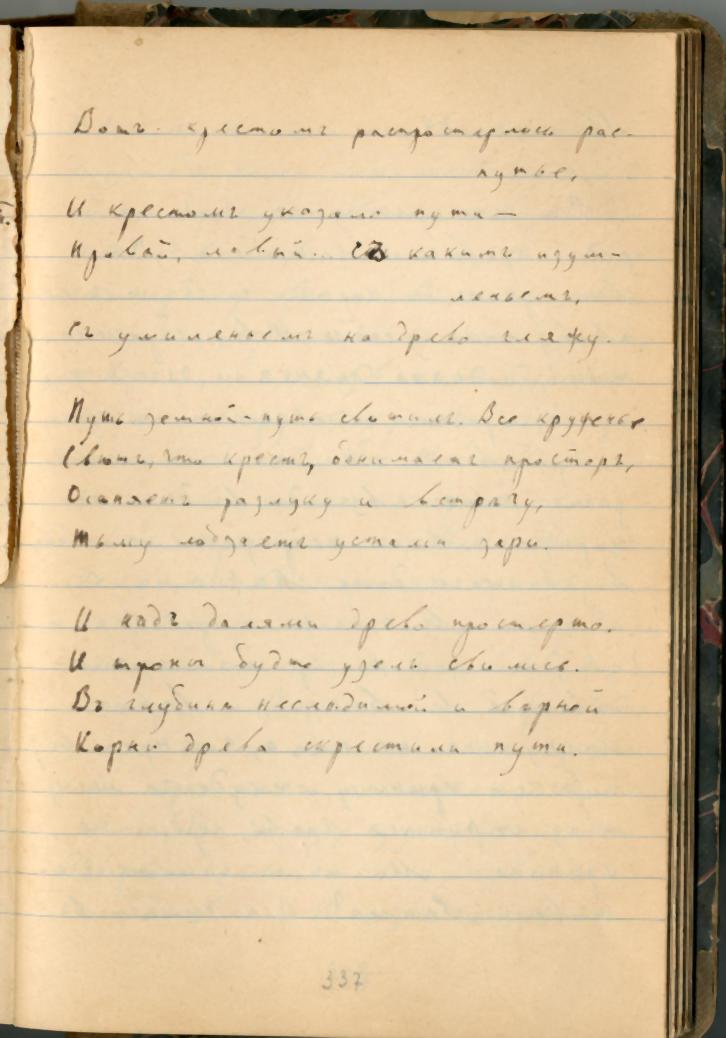 Вотъ крестомъ распростерлось рас-
путье,
И крестомъ указало пути —
Правый, лѣвый. Съ какимъ изум-
леньемъ,
Съ умиленьемъ на древо гляжу.
Путь земной - путь свитилъ. Все круженье
Свютъ, что крестъ, обнимаетъ просторъ,
Осѣняетъ разлуку и встрѣчу,
Тьму лобзаетъ устами зари.
И надъ далями древо простерто.
И тропы будто узелъ свились.
Въ глубинѣ неслѣдимой и вѣрной
Корни древа скрестили пути.
337